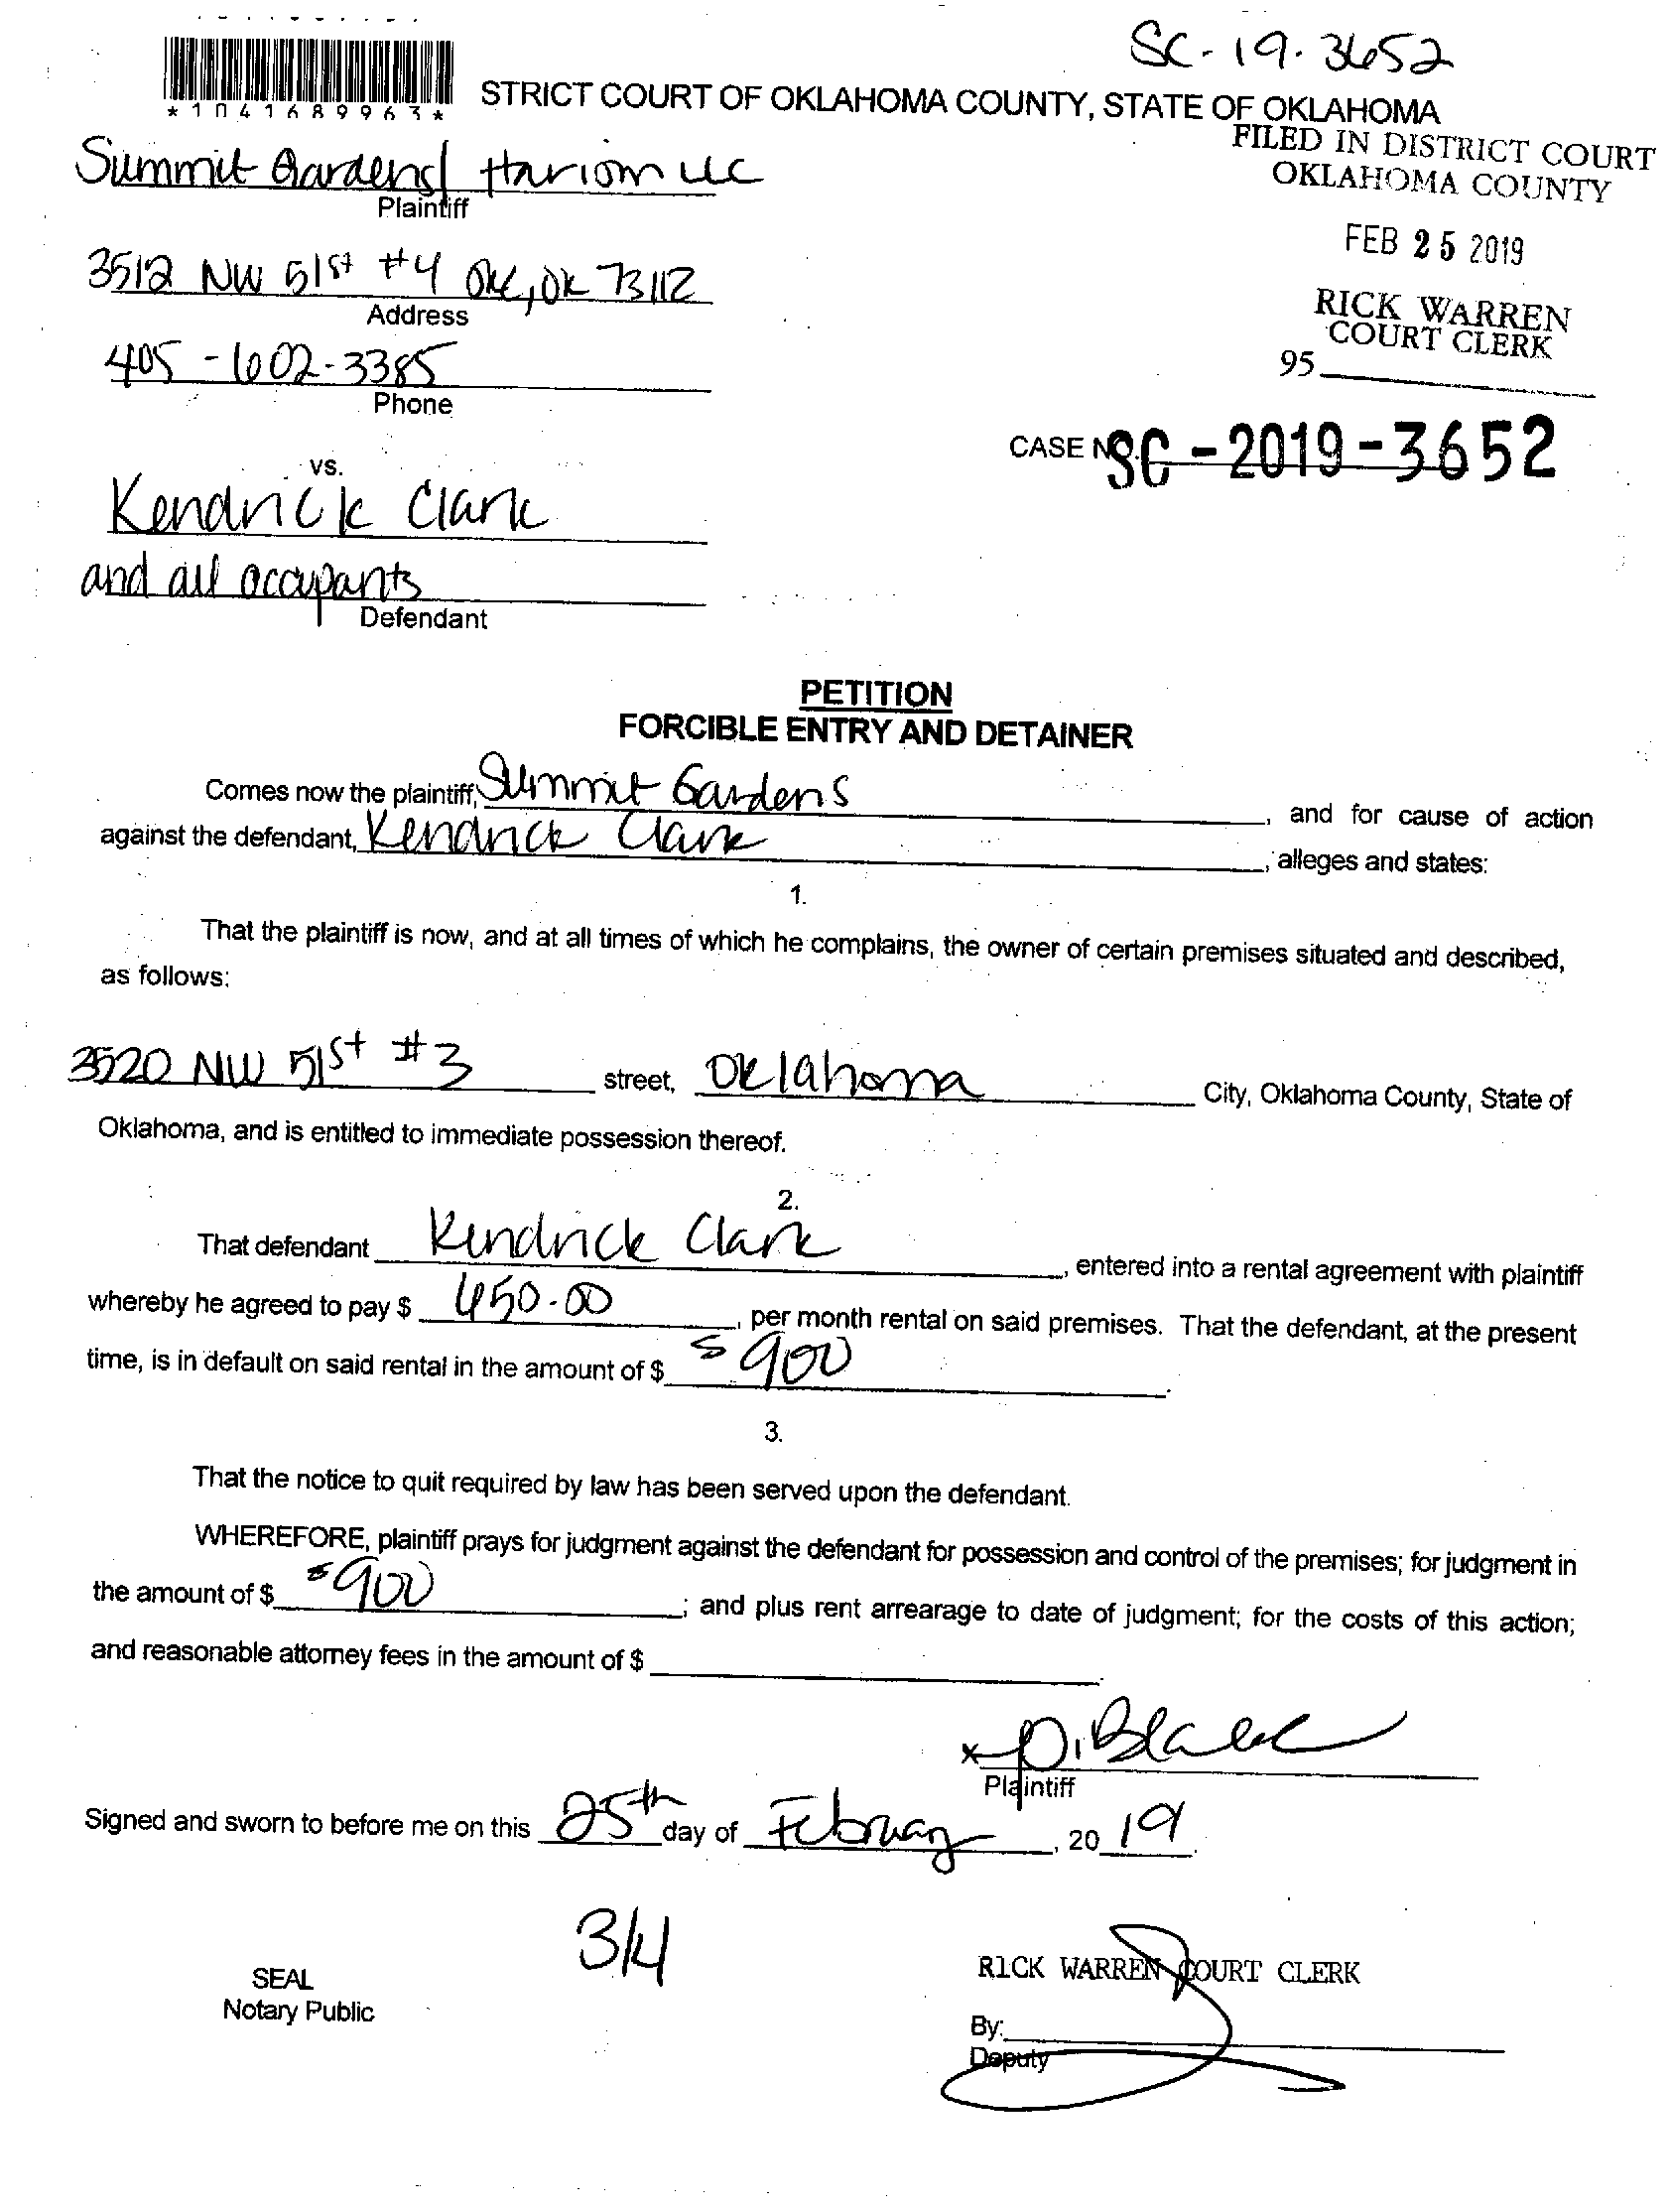 SC-19-3652
*1041689963*
STRICT COURT OF OKLAHOMA COUNTY, STATE OF OKLAHOMA
FILED IN DISTRICT COURT
OKLAHOMA COUNTY
Summit Gardens/ Hariom LLC
Plaintiff
FEB 25 2019
3512 NW 51st #4 OKC, OK 73112
Address
RICK WARREN
COURT CLERK
95
405-602-3385
Phone
CASE NO. SC-2019-3652
vs.
Kendrick Clark
and all occupants
Defendant
PETITION
FORCIBLE ENTRY AND DETAINER
Comes now the plaintiff, Summit Gardens, and for cause of action
against the defendant, Kendrick Clark, alleges and states:
1.
That the plaintiff is now, and at all times of which he complains, the owner of certain premises situated and described,
as follows:
3520 NW 51st #3 street, Oklahoma City, Oklahoma County, State of
Oklahoma, and is entitled to immediate possession thereof.
2.
That defendant Kendrick Clark, entered into a rental agreement with plaintiff
whereby he agreed to pay $ 450.00, per month rental on said premises. That the defendant, at the present
time, is in default on said rental in the amount of $ $900.
3.
That the notice to quit required by law has been served upon the defendant.
WHEREFORE, plaintiff prays for judgment against the defendant for possession and control of the premises; for judgment in
the amount of $ $900; and plus rent arrearage to date of judgment; for the costs of this action;
and reasonable attorney fees in the amount of $.
x D. Blake
Plaintiff
Signed and sworn to before me on this 25th day of February, 2019.
3/4
SEAL
Notary Public
RICK WARREN COURT CLERK
By:
Deputy